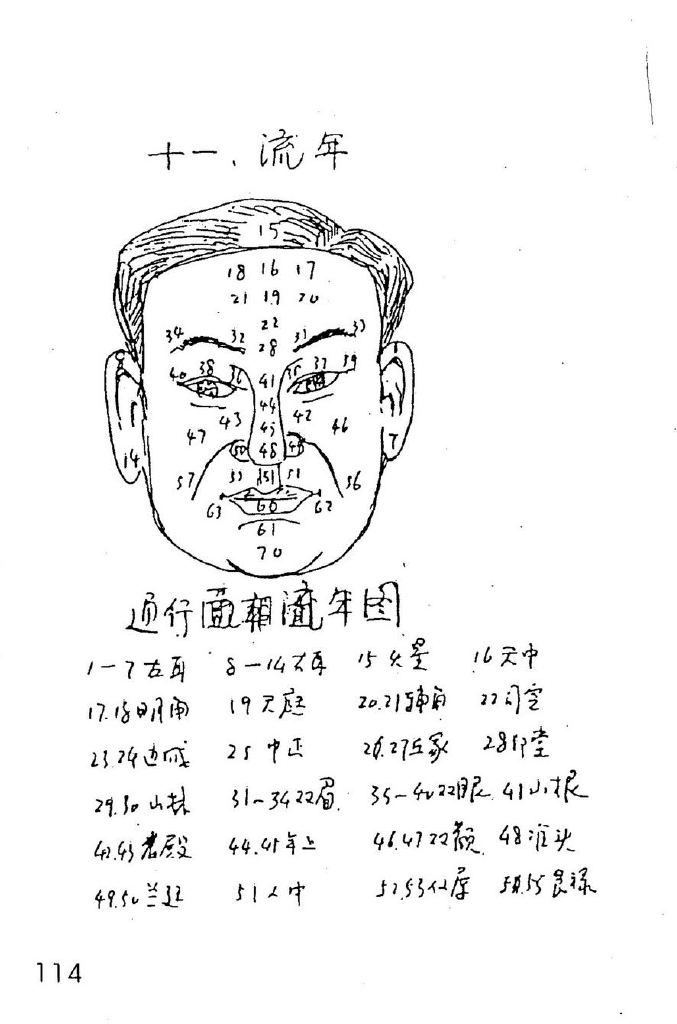 十一、流年
15
18 16 17
21 19 20
22
34 32 28 31 33
40 38 36 41 35 37 39
44
43 42
47 45 46
50 48 49
14 7
57 53 51 52 56
63 60 62
61
70
通行面相流年图
1—7左耳 8—14右耳 15火星 16天中
17.18日月角 19天庭 20.21辅角 22司空
23.24边城 25中正 26.27丘冢 28印堂
29.30山林 31~34双眉 35—40双眼 41山根
42.43 殿 44.45年上 46.47双颧 48准头
49.50兰廷 51人中 52.53仙库 54.55食禄
114